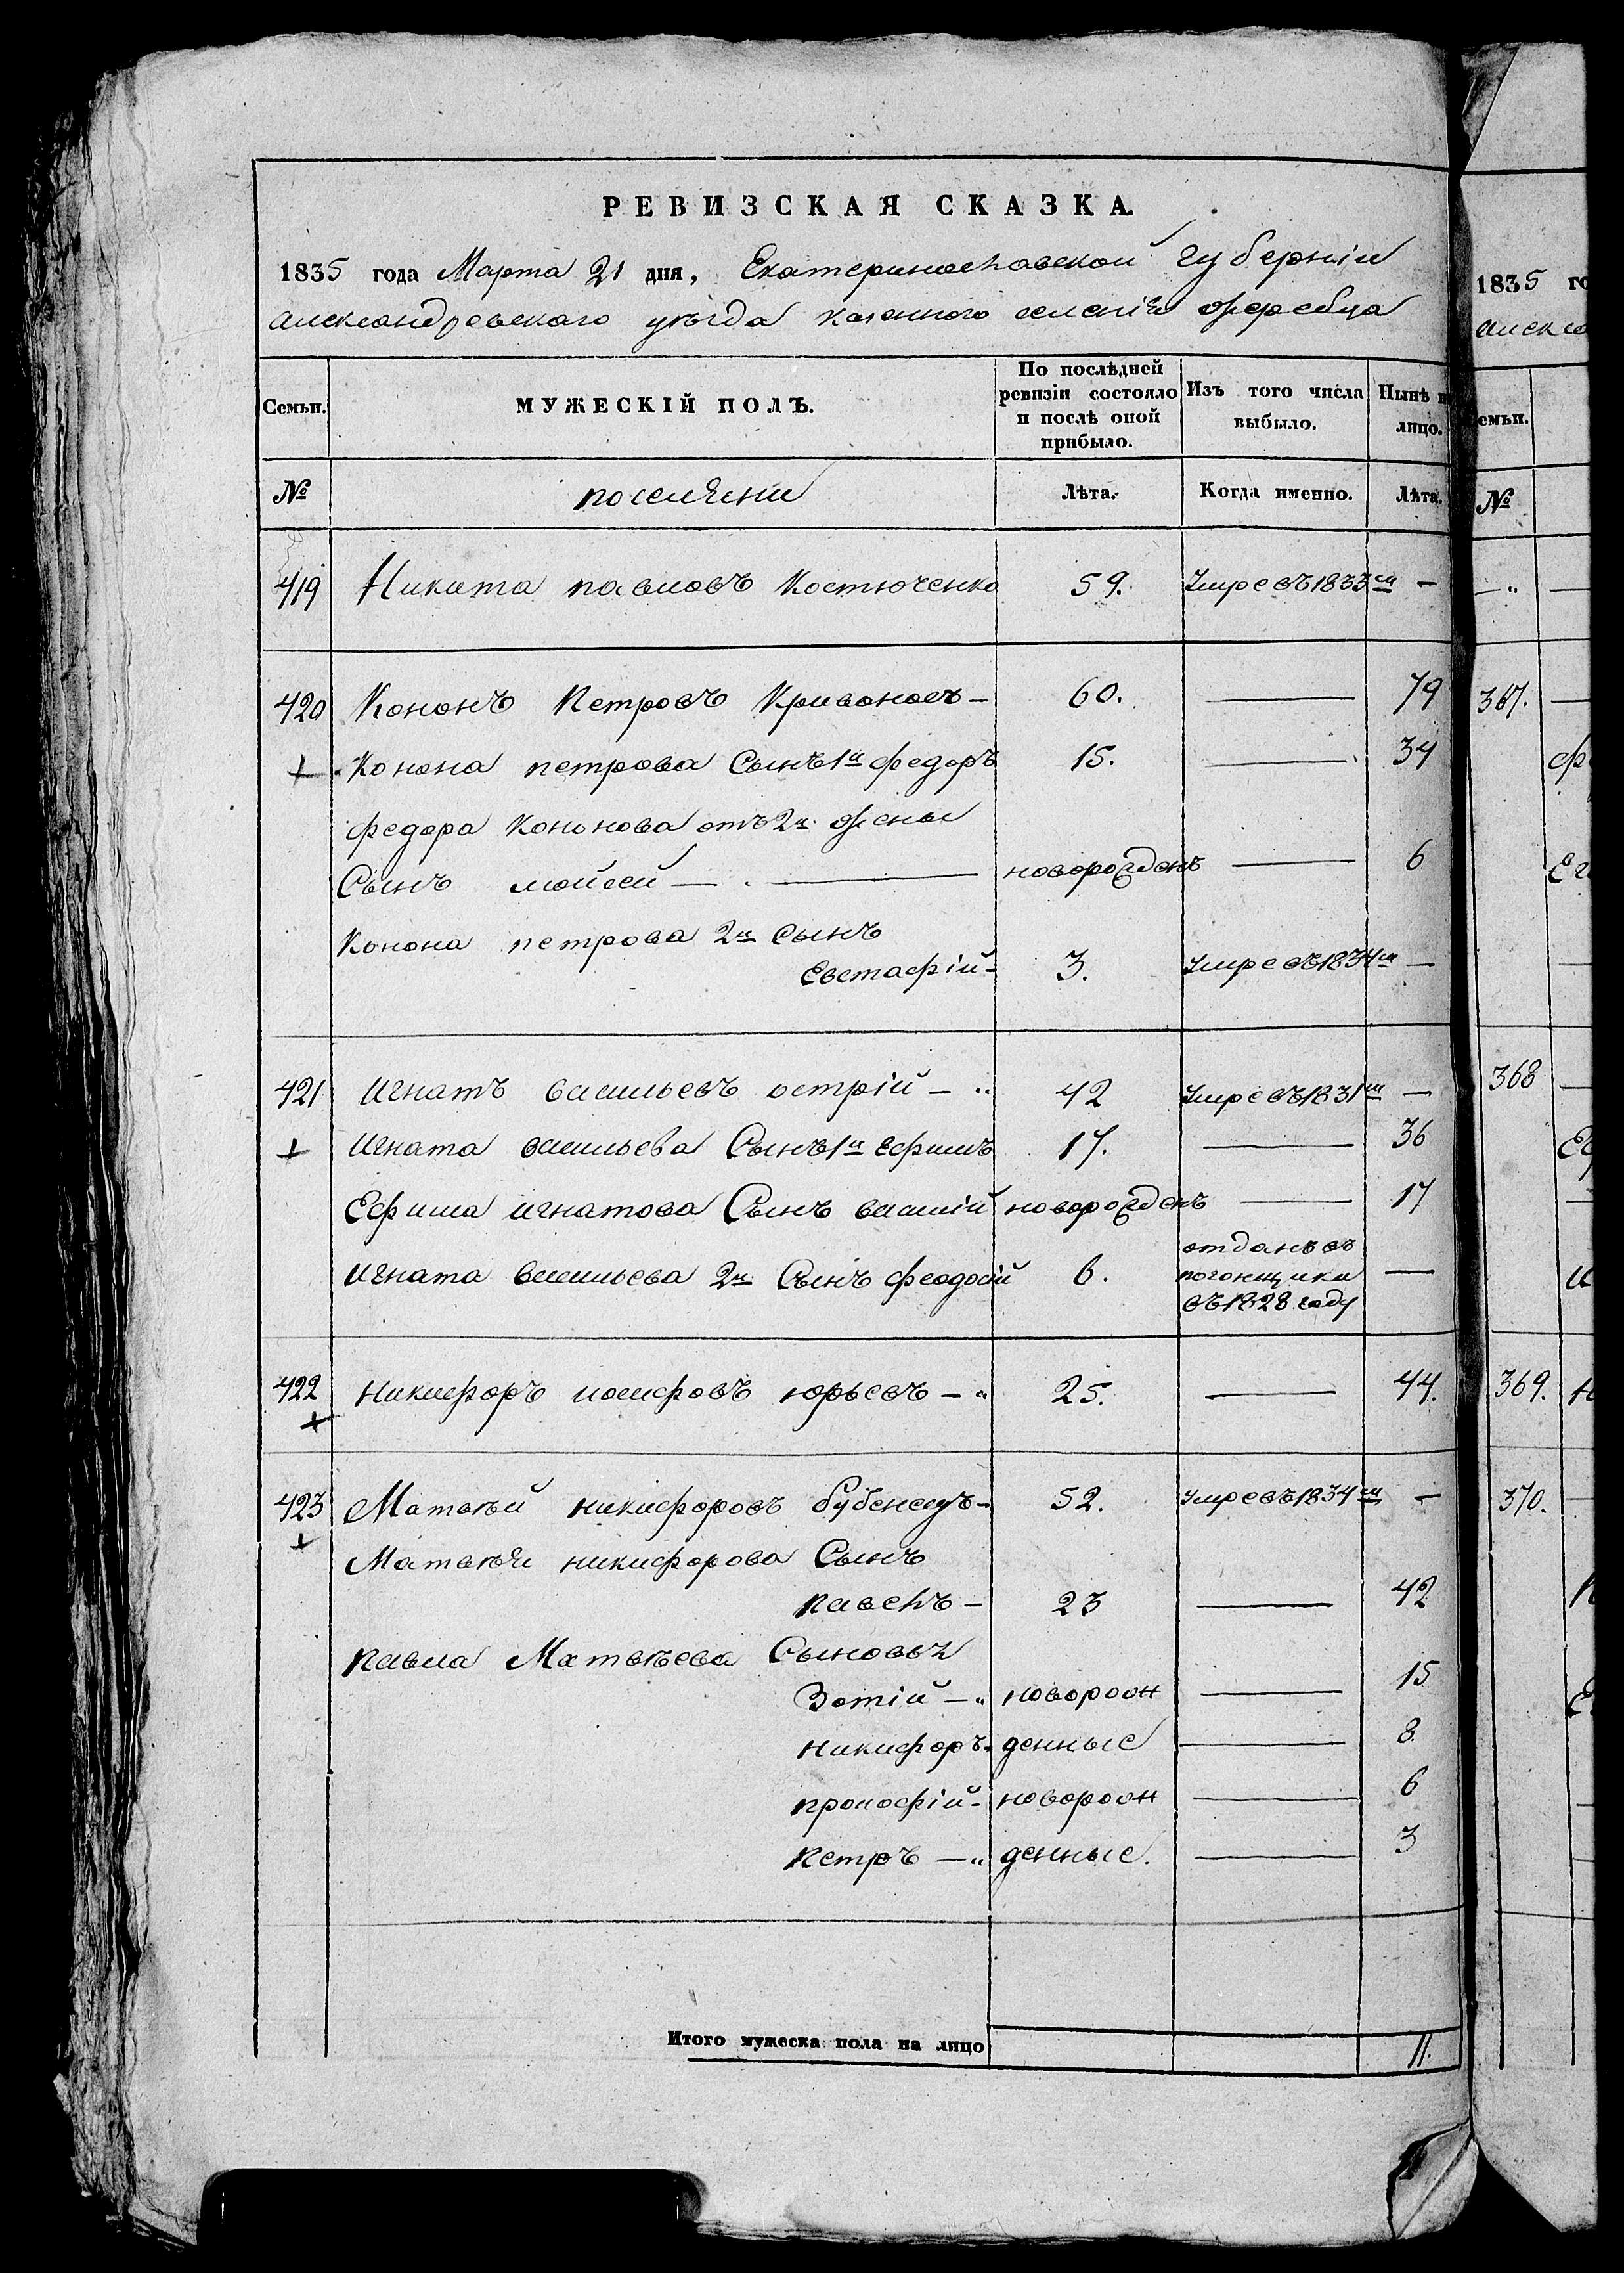 РЕВИЗСКАЯ СКАЗКА.
1835 года Марта 21 дня, Екатеринославской губерніи
Александровскаго уѣзда казенного селенія Жеребца
Семьи. МУЖЕСКІЙ ПОЛЪ. По послѣдней ревизіи состояло и послѣ оной прибыло. Изъ того числа выбыло. Нынѣ н лицо.
№ поселяни Лѣта. Когда именно. Лѣта.
419 Никита павловъ Костюченко 59. Умре въ 1833м —
420 Кононъ Петровъ Кривоносъ — 60. — 79
+ Конона петрова Сынъ 1й федоръ 15. — 34
федора Кононова отъ 2й жены
Сынъ мойсей — новорожденъ — 6
Конона петрова 2й сынъ
Евстафій — 3. Умре въ 1834м —
421 Игнатъ васильевъ острій — 42 Умре въ 1831м —
+ Игната васильева Сынъ 1й ефимъ 17. — 36
Ефима игнатова Сынъ василій новорожденъ — 17
Игната васильева 2й Сынъ феодосій 6. отданъ въ погонщики въ 1828 году —
422 никифоръ иосифовъ юрьевъ — 25. — 44.
+
423 Матвѣй никифоровъ бубенецъ — 52. Умре въ 1834м —
+ Матвѣя никифорова Сынъ
павелъ — 23 — 42
павла Матвѣева Сыновья
Зотій — новорож — 15
никифоръ. денные — 8.
прокофій — новорож — 6
петръ — денные. — 3
Итого мужеска пола на лицо 11.
1835 го
алекса
емьи.
№
367.
368
369.
370.